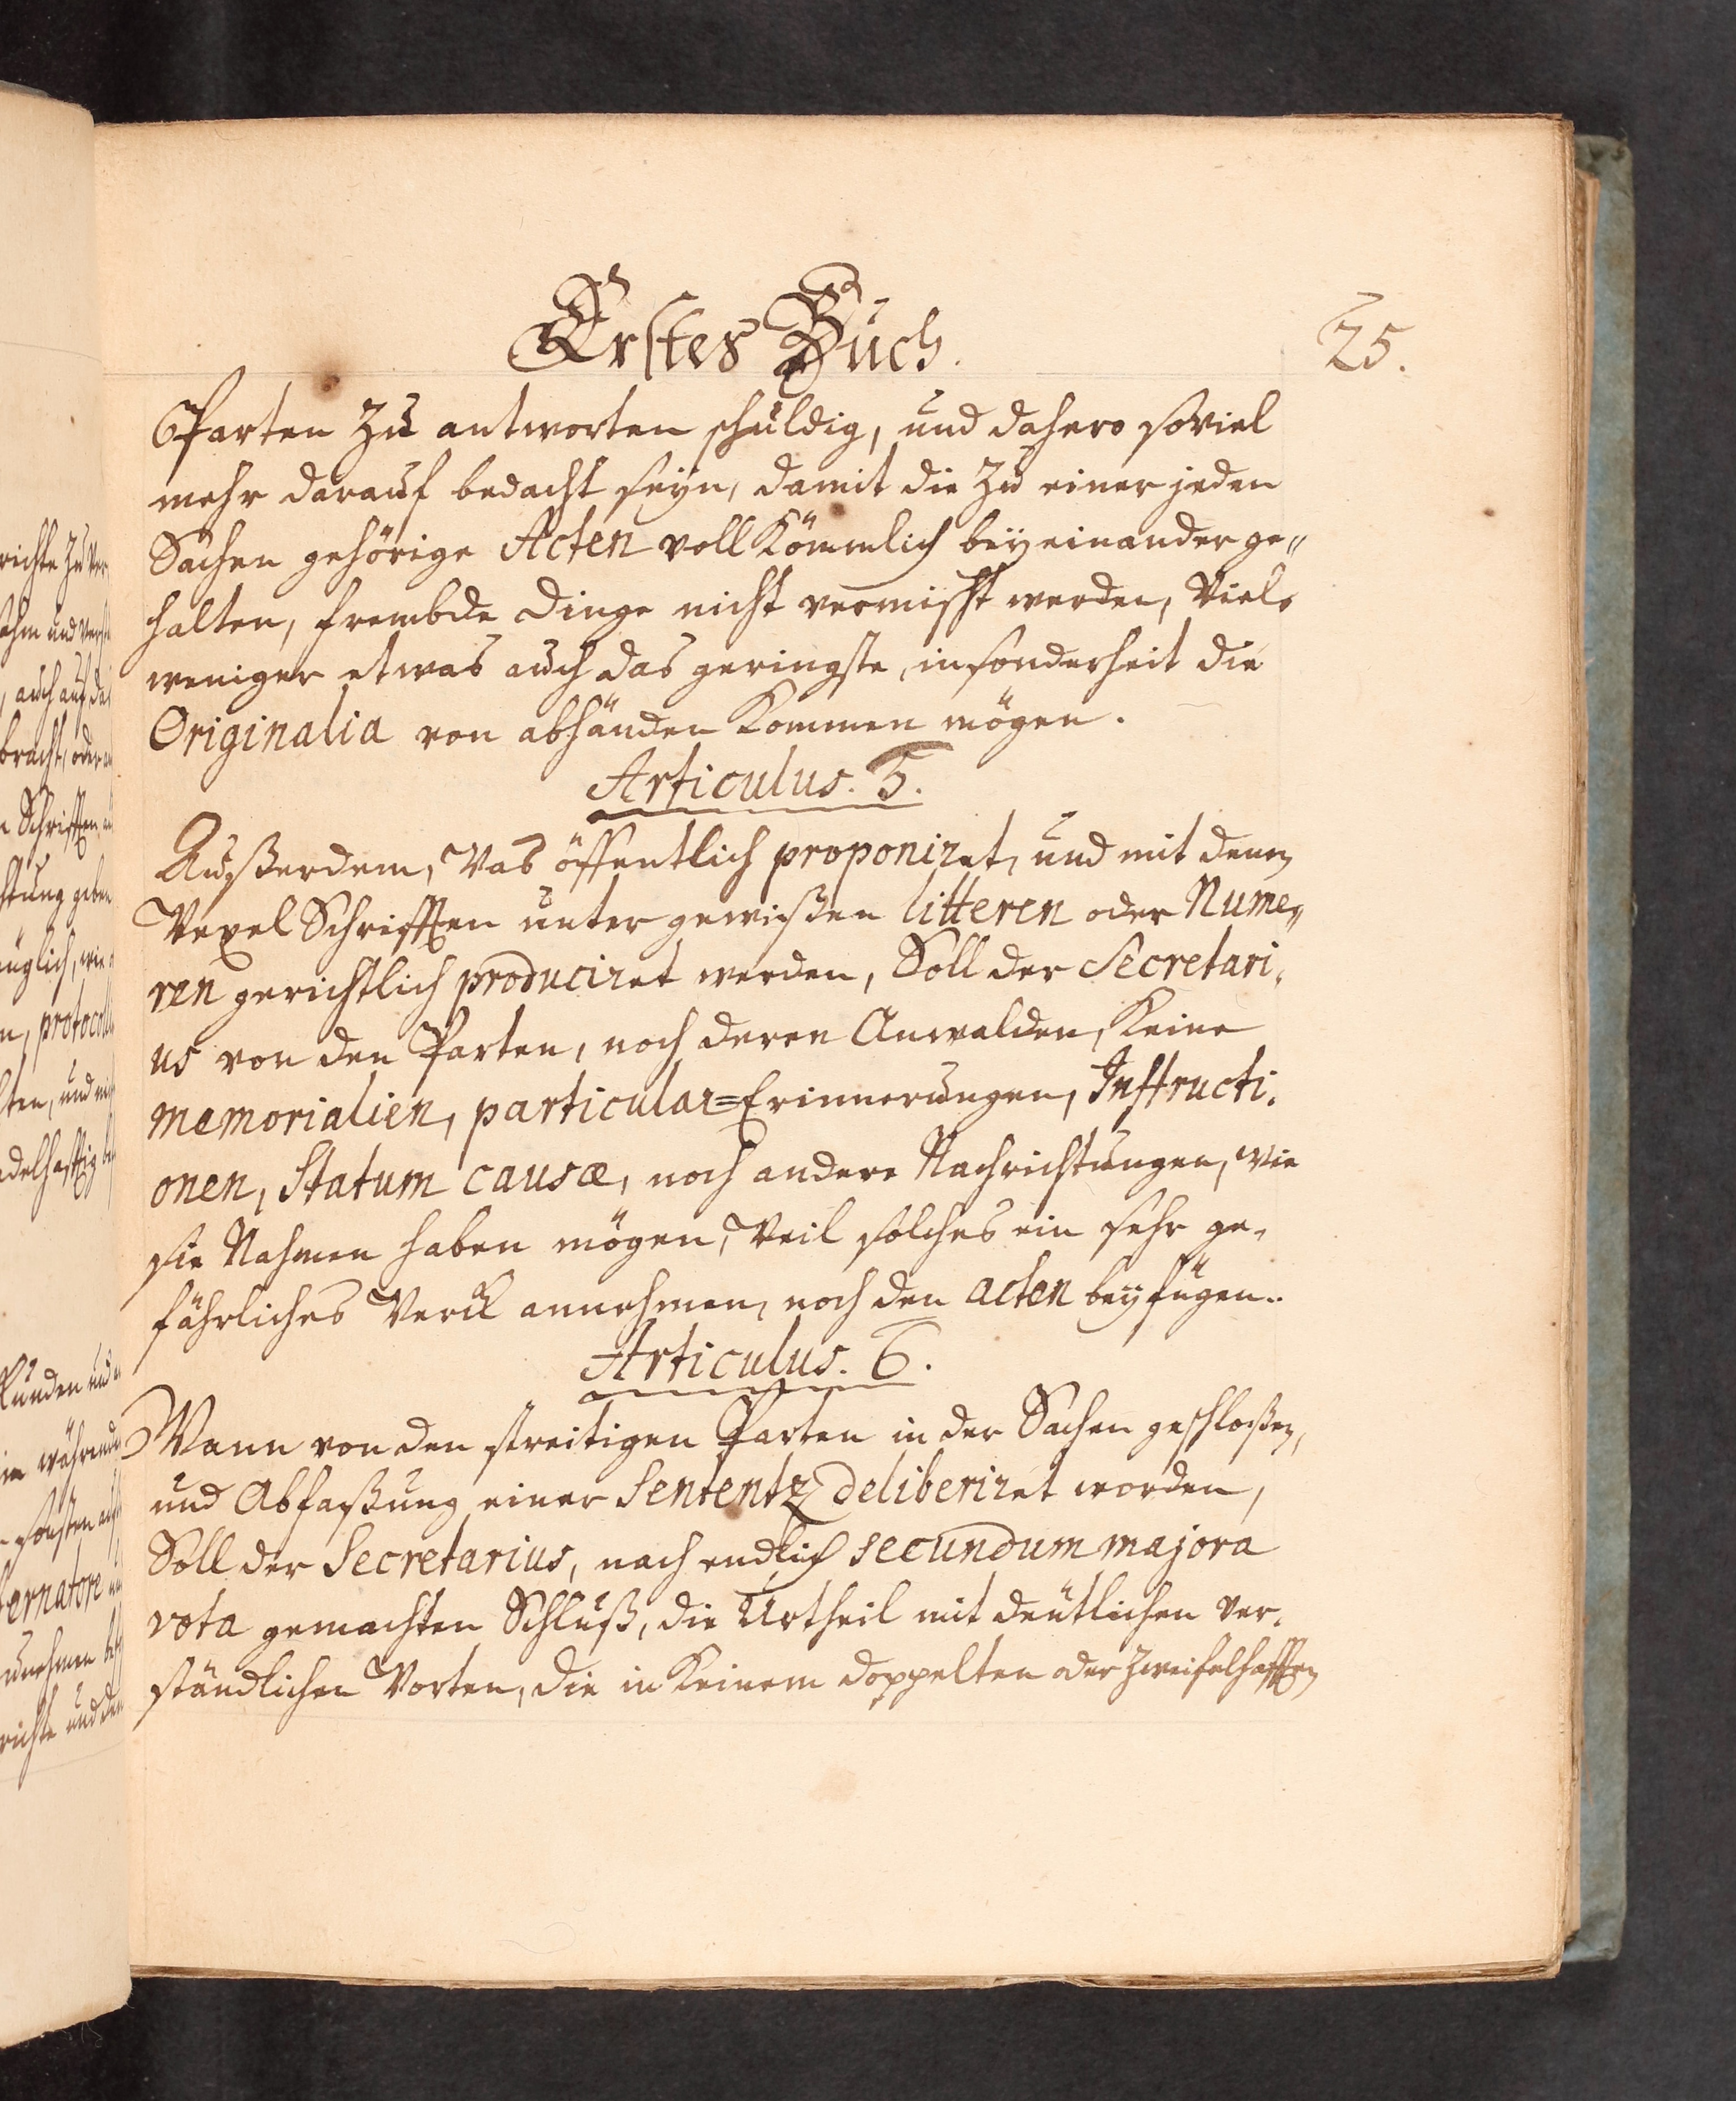 Erstes Buch.
25.
Parten zu antworten schuldig, und dahero soviel
mehr darauf bedacht seyn, damit die zu einer jeden
Sachen gehörige Acten vollkömmlich beyeinander ge„
halten, frembde Dinge nicht vermischt werden, Viel„
weniger etwas auch das geringste, insonderheit die
Originalia von abhänden kommen mögen.
Articulus. 5.
Außerdem, Was öffentlich proponiret, und mit denen
Wexel Schrifften unter gewißen litteren oder Nume„
ren gerichtlich produciret werden, Soll der Secretari„
us von den Parten, noch deren Anwalden, Keine
memorialien, particular=Erinnerungen, Instructi„
onen, Statum causæ, noch andere Nachrichtungen, wie
sie Nahmen haben mögen, Weil solches ein sehr ge„
fährliches Werck annehmen, noch den acten beyfügen.
Articulus. 6.
Wann von den streitigen Parten in der Sachen geschloßen,
und Abfaßung einer Sententz deliberiret worden,
Soll der Secretarius, nach endlich secundum majora
vota gemachten Schluß, die Urtheil mit deutlichen ver„
ständlichen Worten, die in Keinem doppelten oder zweifelhafften